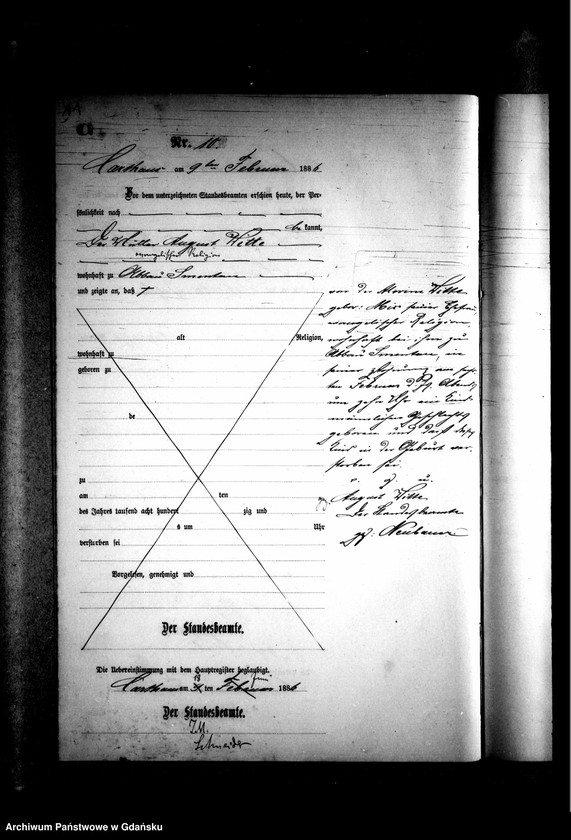 Nr. 10.
Carthaus am 9ten Februar 1886.
Vor dem unterzeichneten Standesbeamten erschien heute, der Per-
sönlichkeit nach
be kannt,
Der Müller August Witte
evangelischer Religion
wohnhaft zu
und zeigte an, daß
von der Witte
gebor: seiner Ehefrau
evangelischer Religion
wohnhaft bei ihm zu
in
seiner Wohnung am
ten Februar d. Jhs. Abends
um zehn Uhr ein Kind
männlichen Geschlechts
geboren und daß dieses
Kind in der Geburt ver-
storben sei.
v. g. u.
gez. August Witte
Der Standesbeamte
gez: Neubauer
alt Religion,
wohnhaft zu
geboren zu
de
zu
am ten
des Jahres tausend acht hundert zig und
s um Uhr
verstorben sei
Vorgelesen, genehmigt und
Der Standesbeamte.
Die Uebereinstimmung mit dem Hauptregister beglaubigt.
Carthaus am 18 ten Februar Juni 1886
Der Standesbeamte.
Schneider
Archiwum Państwowe w Gdańsku